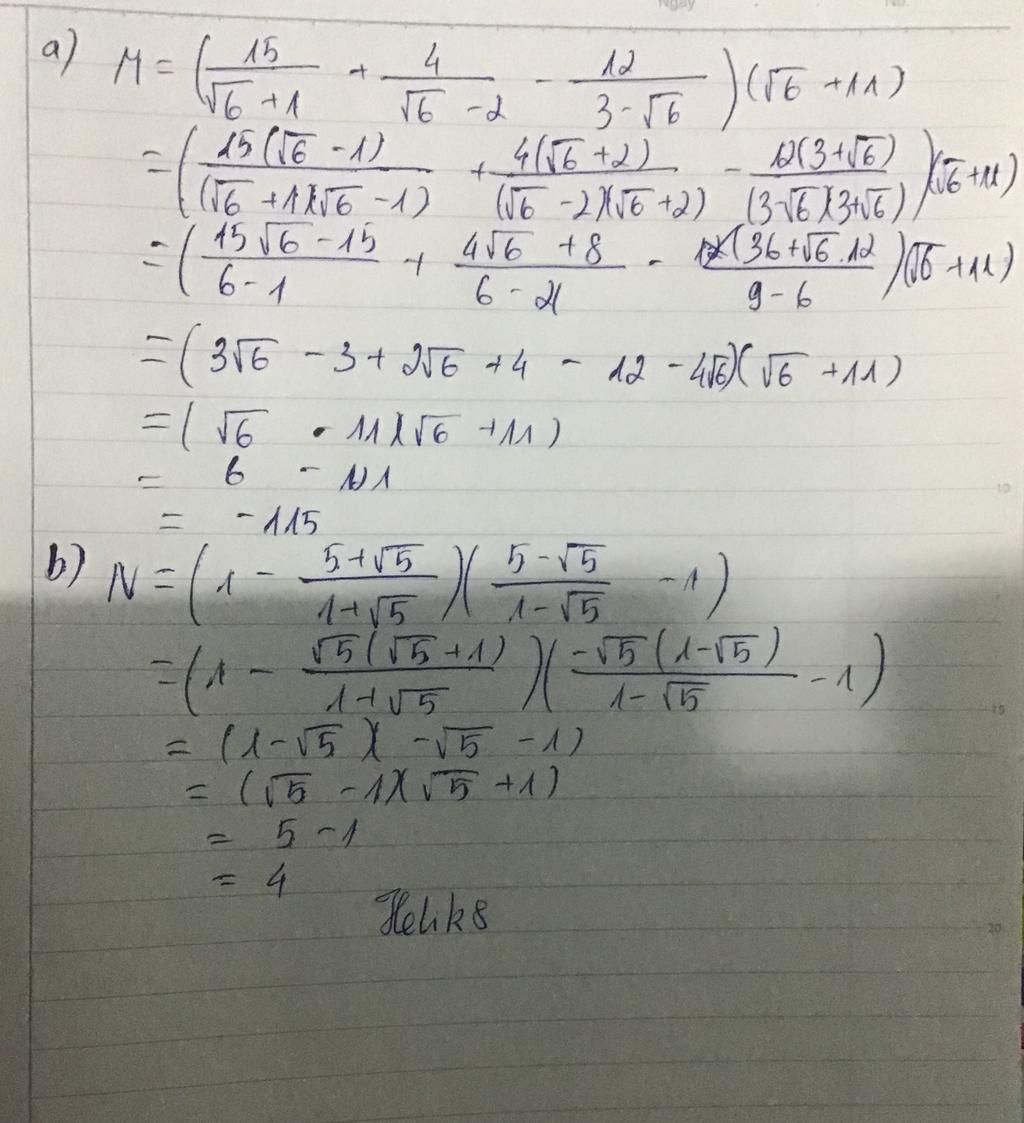 Ngày No.
a) M = (15/(√6 + 1) + 4/(√6 - 2) - 12/(3 - √6))(√6 + 11)
= (15(√6 - 1)/((√6 + 1)(√6 - 1)) + 4(√6 + 2)/((√6 - 2)(√6 + 2)) - 12(3 + √6)/((3 - √6)(3 + √6)))(√6 + 11)
= ((15√6 - 15)/(6 - 1) + (4√6 + 8)/(6 - 4) - (36 + √6.12)/(9 - 6))(√6 + 11)
= (3√6 - 3 + 2√6 + 4 - 12 - 4√6)(√6 + 11)
= (√6 - 11)(√6 + 11)
= 6 - 121
= -115
10
b) N = (1 - (5 + √5)/(1 + √5))((5 - √5)/(1 - √5) - 1)
= (1 - √5(√5 + 1)/(1 + √5))(-√5(1 - √5)/(1 - √5) - 1)
15
= (1 - √5)(-√5 - 1)
= (√5 - 1)(√5 + 1)
= 5 - 1
= 4
20